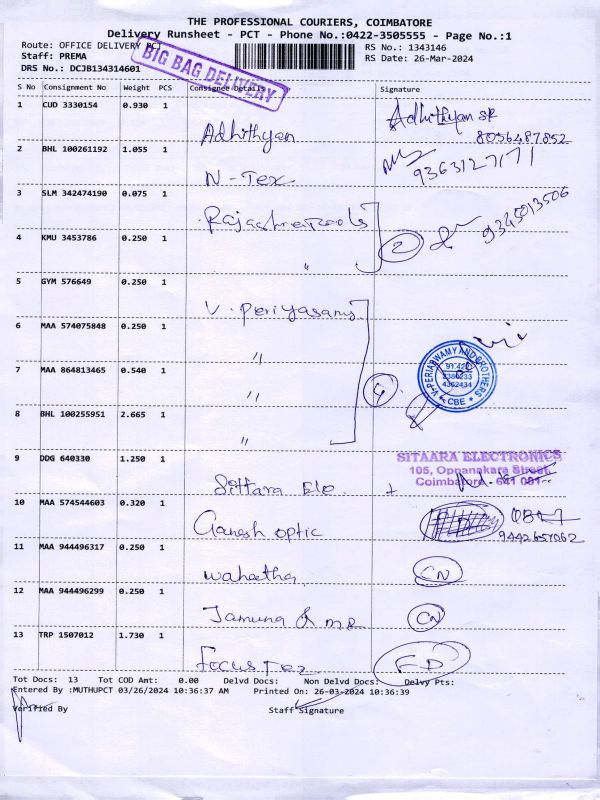 THE PROFESSIONAL COURIERS, COIMBATORE
Delivery Runsheet - PCT - Phone No.:0422-3505555 - Page No.:1
Route: OFFICE DELIVERY PCT
RS No.: 1343146
Staff: PREMA
RS Date: 26-Mar-2024
DRS No.: DCJB134314601
BIG BAG DELIVERY
S No Consignment No Weight PCS Consignee Details Signature
1 CUD 3330154 0.930 1
Adhithyan Adhithyan SR
8056487852
2 BHL 100261192 1.055 1
N-Tex 9363127171
3 SLM 342474190 0.075 1
Rajashree Tools 2 9345013506
4 KMU 3453786 0.250 1
"
5 GYM 576649 0.250 1
V. Periyasamy
6 MAA 574075848 0.250 1
"
7 MAA 864813465 0.540 1
" 4
V-PERIASWAMY AND BROTHERS
CBE
8 BHL 100255951 2.665 1
"
9 DDG 640330 1.250 1
Sittara Ele.
SITAARA ELECTRONICS
105, Oppanakara Street,
Coimbatore - 641 001
10 MAA 574544603 0.320 1
Ganesh optic
9442657062
11 MAA 944496317 0.250 1
CN
12 MAA 944496299 0.250 1
Jamuna CN
13 TRP 1507012 1.730 1
Focus Tex FD
Tot Docs: 13 Tot COD Amt: 0.00 Delvd Docs: Non Delvd Docs: Delvy Pts:
Entered By :MUTHUPCT 03/26/2024 10:36:37 AM Printed On: 26-03-2024 10:36:39
Verified By Staff Signature